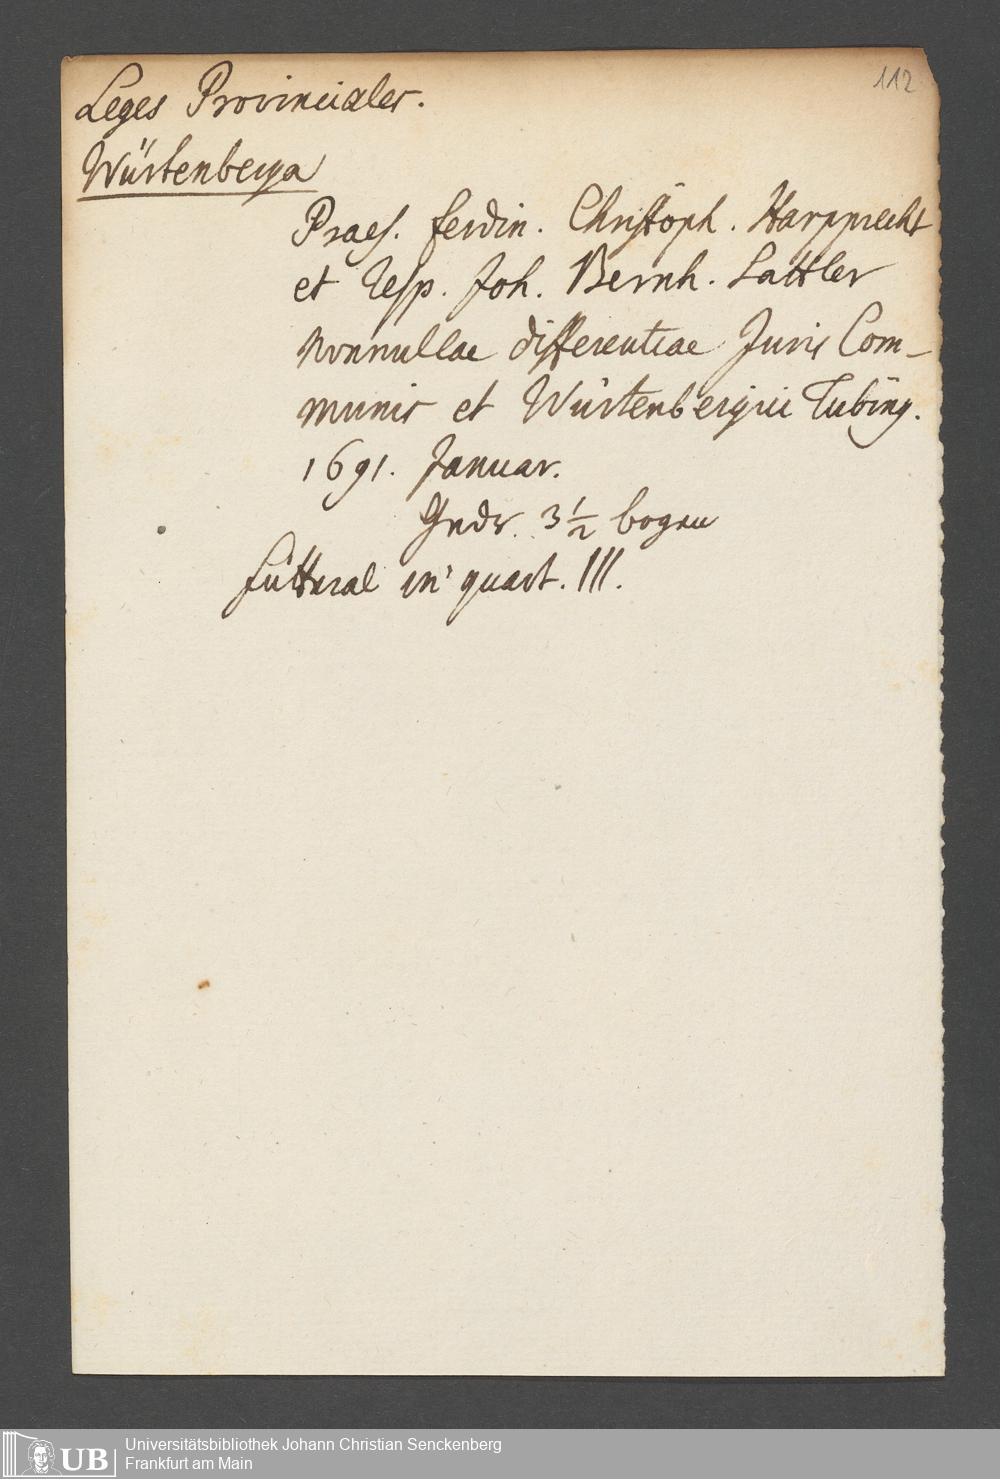 112
Leges Provinciales.
Würtenberga
Praes. Ferdin. Christoph. Harpprecht
et Resp. Joh. Bernh. Sattler
nonnullae differentiae Juris Com-
munis et Würtenbergici Tubing.
1691. Januar.
3 1/2 bogen
Futteral in quart. III.
UB
Universitätsbibliothek Johann Christian Senckenberg
Frankfurt am Main